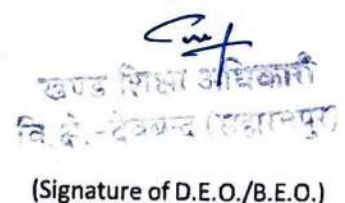 खण्ड शिक्षा अधिकारी
वि. क्षे.-देवबन्द (सहारनपुर)
(Signature of D.E.O./B.E.O.)